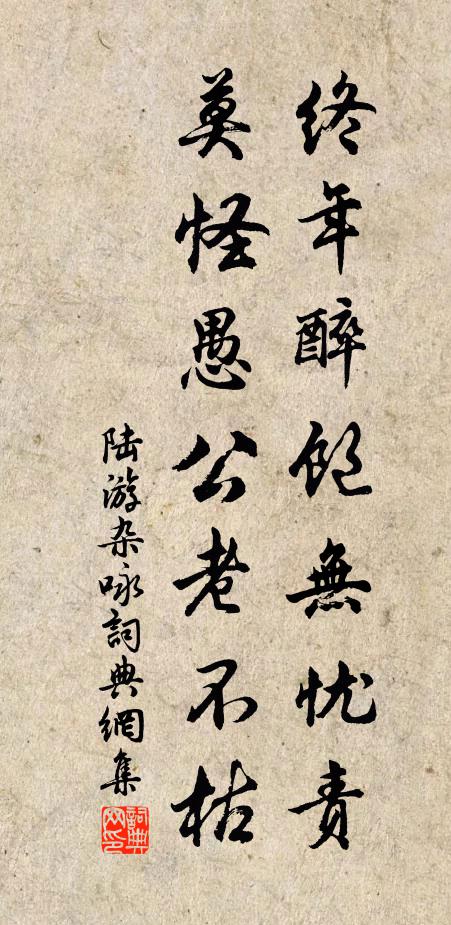 终年醉饱無忧责
莫怪愚公老不枯
陆游杂咏詞典網集
詞典
网印